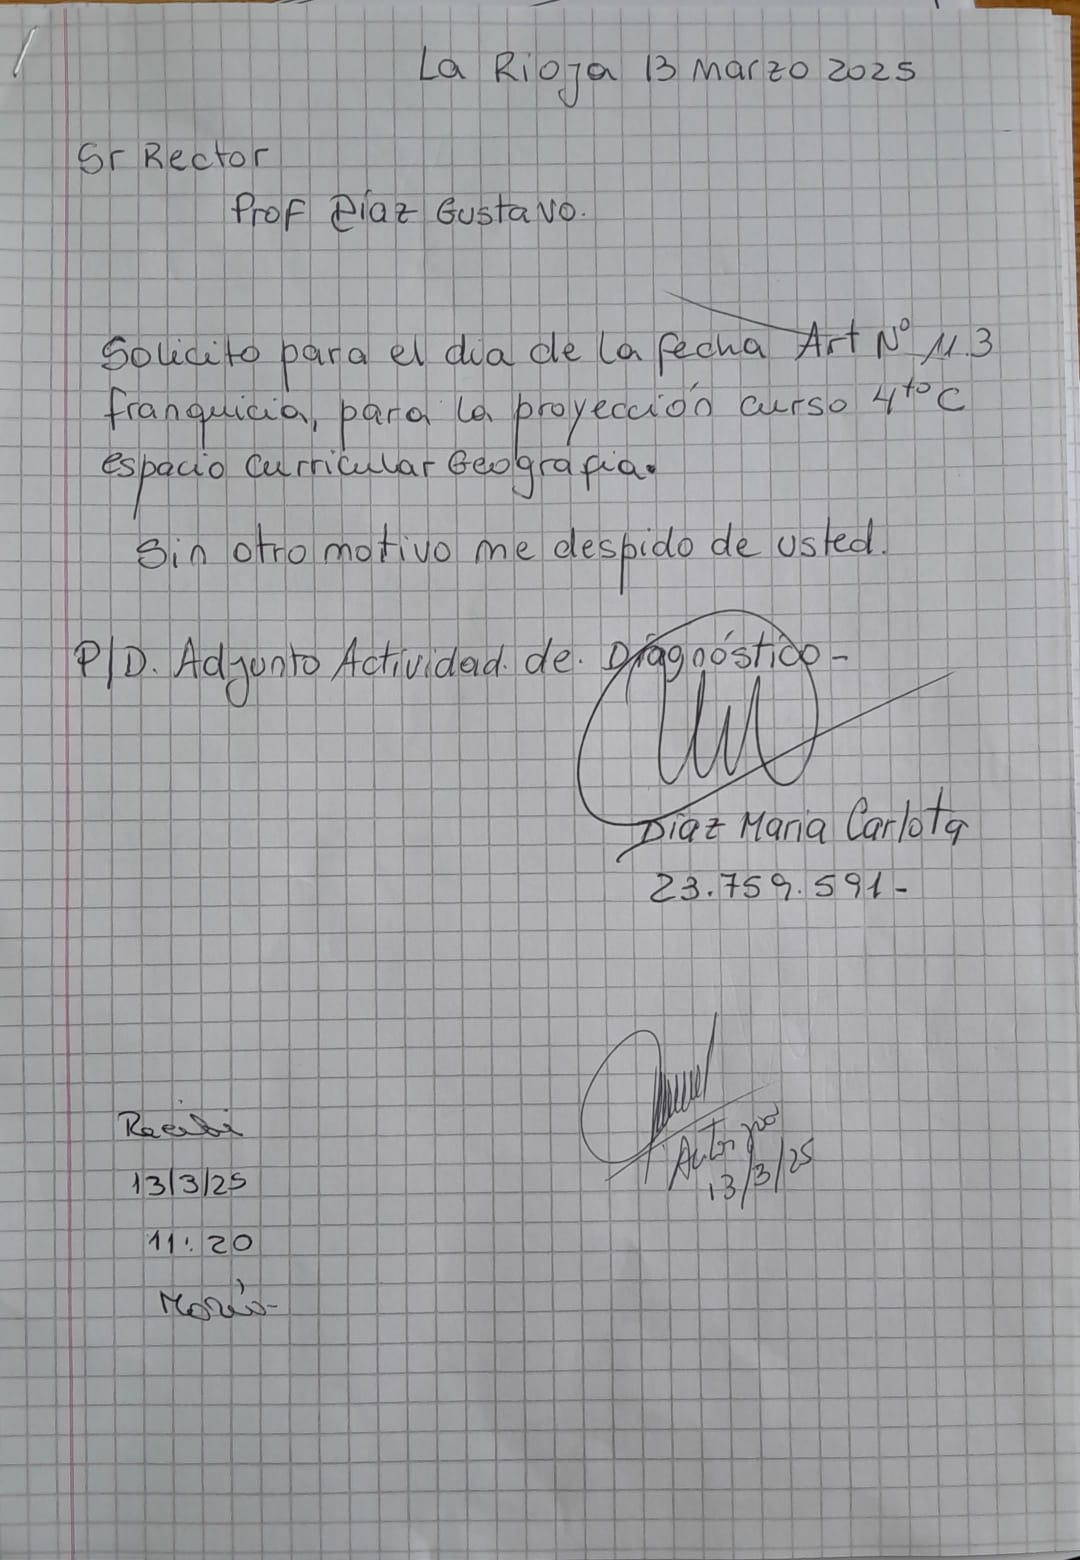 La Rioja 13 Marzo 2025
Sr Rector
Prof Díaz Gustavo.
Solicito para el dia de la fecha Art Nº 11.3
franquicia, para la proyección curso 4to C
espacio curricular Geografia.
Sin otro motivo me despido de usted.
P/D. Adjunto Actividad. de. Diagnóstico-
Díaz Maria Carlota
23.759.591-
Recibi
13/3/25
11:20
Autorizado
13/3/25